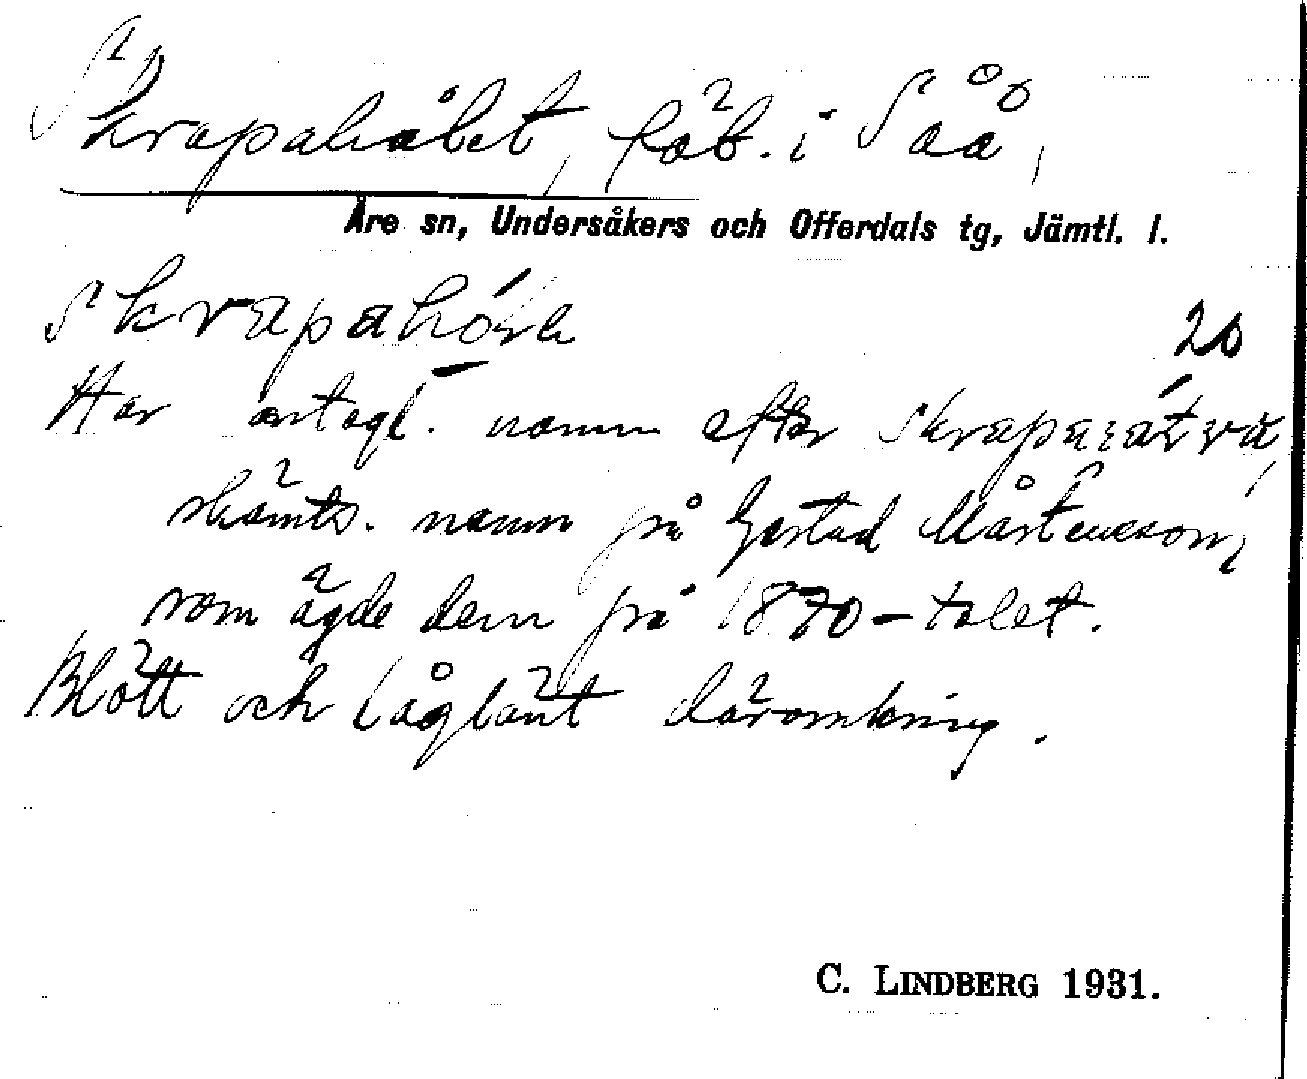 Skrapahålet, fäb. i Såå,
Åre sn, Undersåkers och Offerdals tg, Jämtl. l.
skrapahóɫe
20
Har antagl. namn efter
skämts. namn på Gertud Mårtensson,
som ägde dem på 1870-talet.
Blött och låglänt däromkring.
C. LINDBERG 1931.